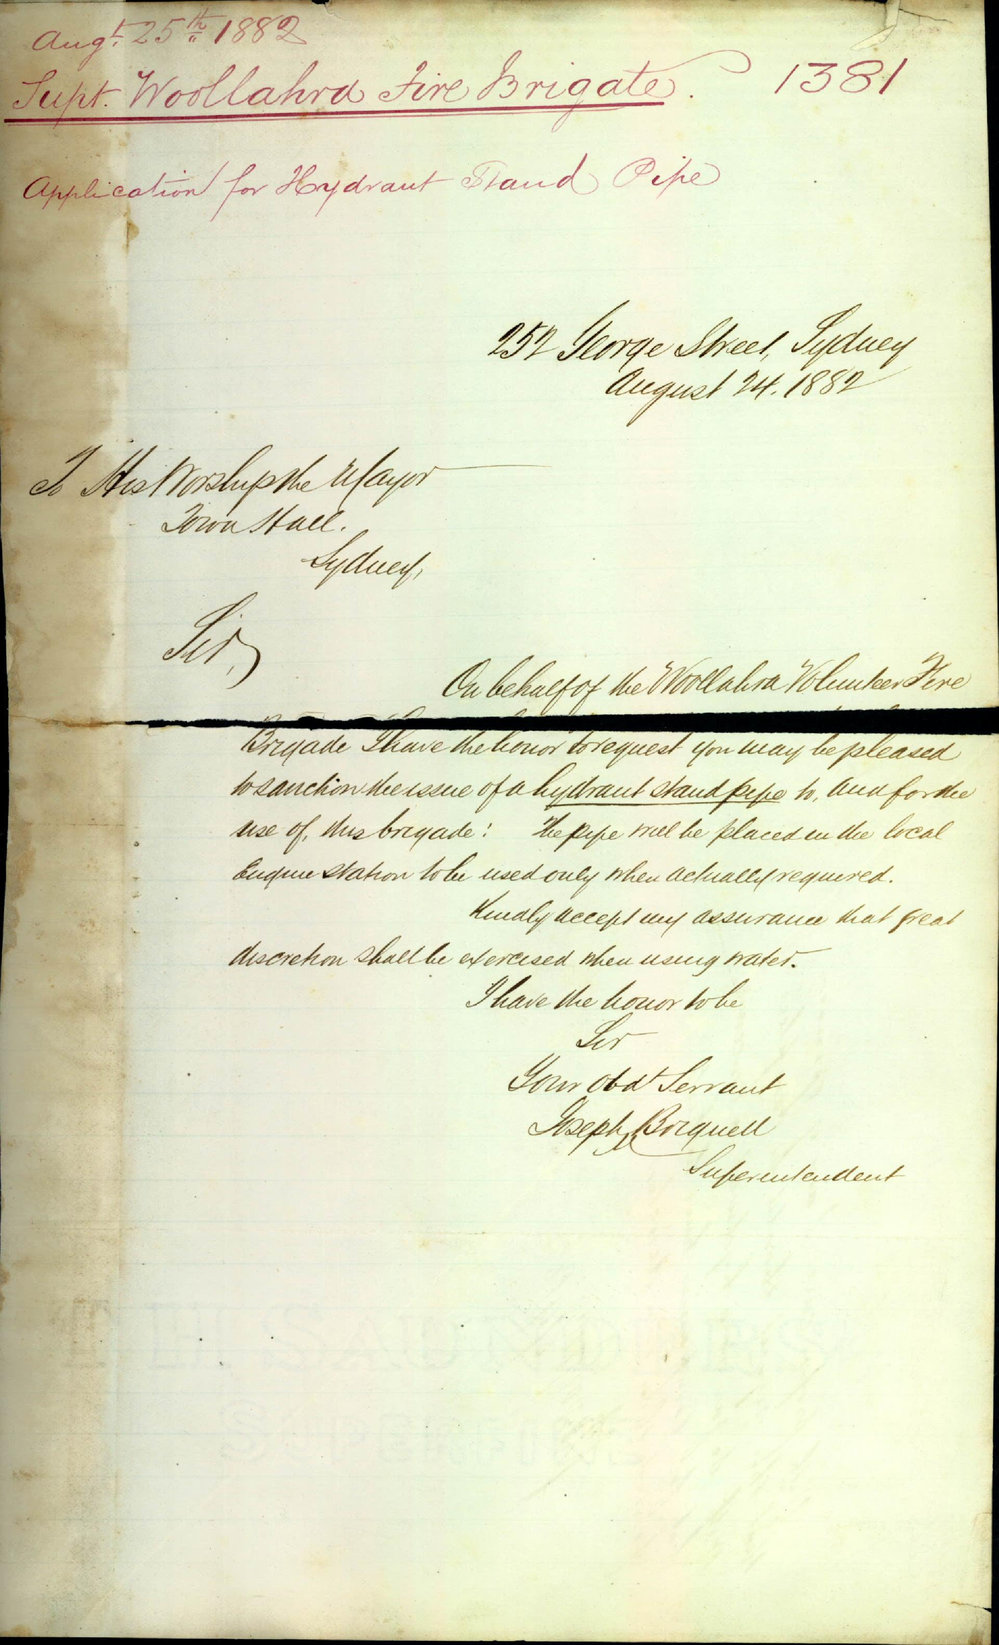 Augt. 25th 1882
Supt. Woollahra Fire Brigate. 1381
Application for Hydrant Stand Pipe
252 George Street, Sydney
August 24. 1882
To His Worship the Mayor
Town Hall.
Sydney,
Sir,
On behalf of the Woollahra Volunteer Fire
Brigade I have the honor to request you may be pleased
to sanction the issue of a hydrant stand pipe to, and for the
use of, this brigade: The pipe will be placed in the local
Engine station to be used only when actually required.
Kindly accept my assurance that great
discretion shall be exercised when using water.
I have the honor to be
Sir
Your Obdt Servant
Joseph
Superintendent